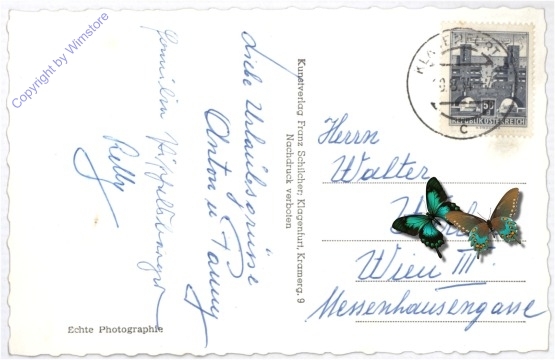 Copyright by Wimstore
Liebe Urlaubsgrüsse
Anton u Fanny
Familie
Kunstverlag Franz Schilcher, Klagenfurt, Kramerg. 9
Nachdruck verboten
Echte Photographie
KLAGENFURT
C
REPUBLIK ÖSTERREICH
Herrn
Walter
Wien III
Messenhausengasse